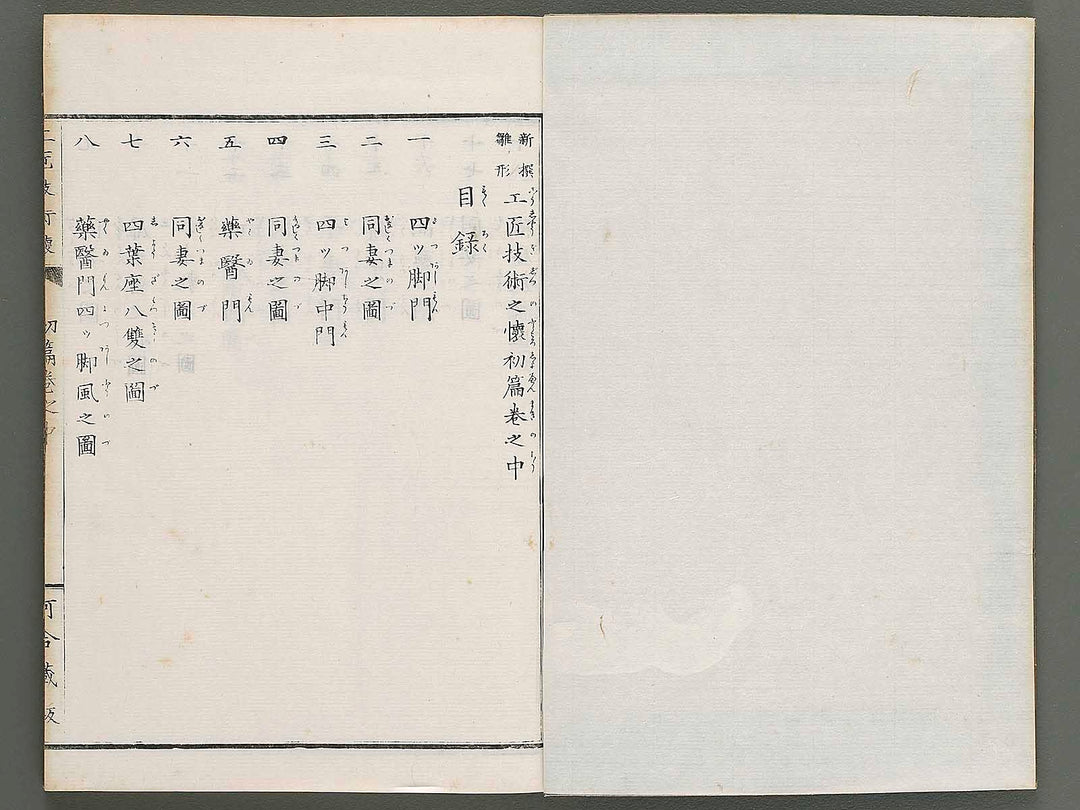 新撰雛形 工匠技術之懐初篇巻之中
目録
一 四ッ脚門
二 同妻之圖
三 四ッ脚中門
四 同妻之圖
五 藥醫門
六 同妻之圖
七 四葉座八雙之圖
八 藥醫門四ッ脚風之圖
工匠技術懐 初篇巻之中 河合藏版